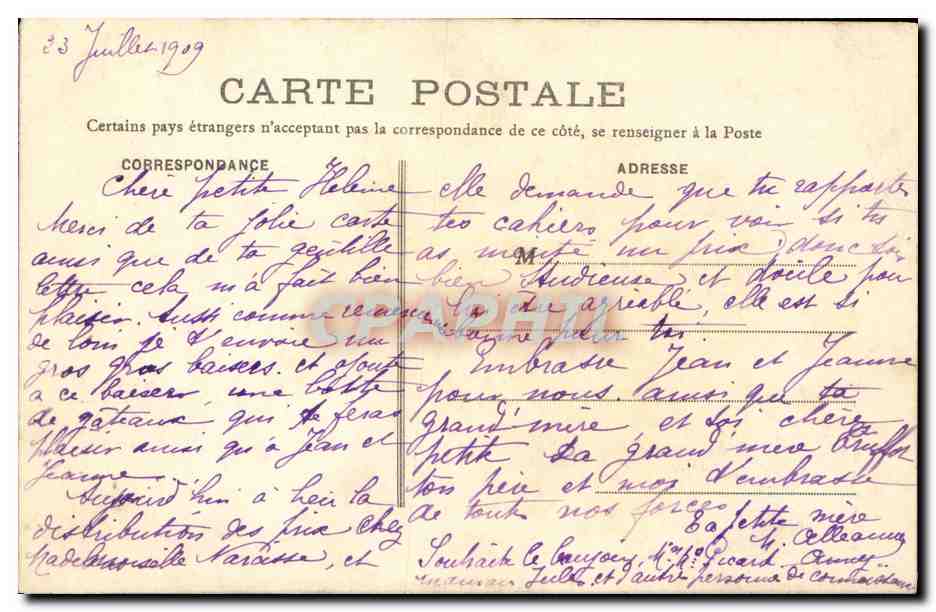 23 Juillet 1909
CARTE POSTALE
Certains pays étrangers n'acceptant pas la correspondance de ce côté, se renseigner à la Poste
CORRESPONDANCE
Chère petite Helene
Merci de ta jolie carte
ainsi que de ta gentille
lettre cela m'a fait bien
plaisir. Aussi comme
de loin je t'envoie un
gros gros baisers et ajoute
a ce baisers, une boîte
de gâteaux qui te feras
plaisir ainsi qu'à Jean et
Jeanne
Aujourd'hui à lieu la
distribution des prix chez
Mademoiselle Narasse, et
ADRESSE
elle demande que tu rapportes
tes cahiers pour voir si tu
as mérité un prix, donc soi
M
bien studieuse et docile pour
lui être agréable, elle est si
bonne pour toi.
Embrasse Jean et Jeanne
pour nous ainsi que ta
grand'mère et toi chère
petite ta grand mère
ton père et moi t'embrasse
de toute nos forces
Ta petite mère
M.
Souhaite le bonjour Mme Picard
maman Jules et d'autre personne de
CPAPHIL